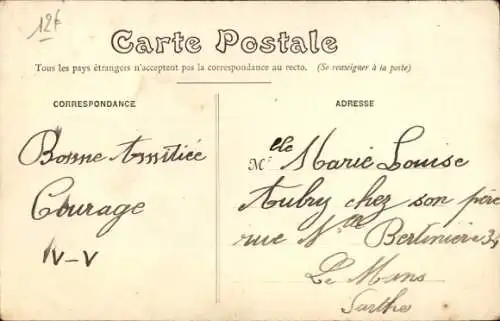 12f
Carte Postale
Tous les pays étrangers n'acceptent pas la correspondance au recto. (Se renseigner à la poste)
CORRESPONDANCE
Bonne Amitiée
Courage
V-V
ADRESSE
Mlle Marie Louise
Aubry chez son père
rue Nle Bertinière 34
Le Mans
Sarthe